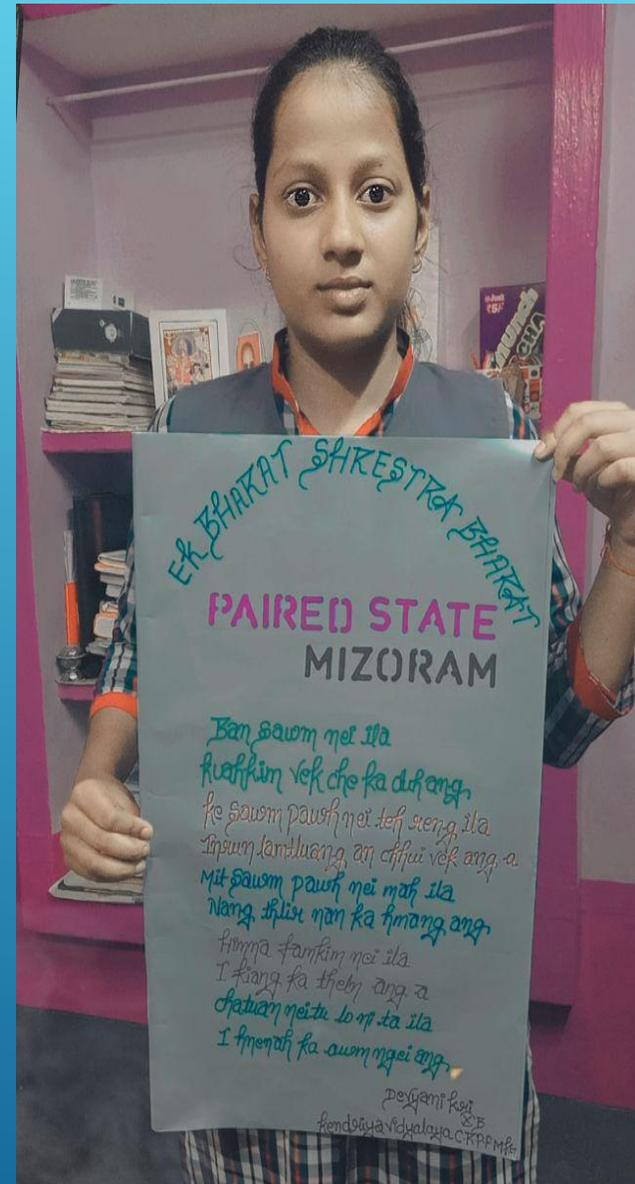 EK BHARAT SHRESTRA BHARAT
PAIRED STATE
MIZORAM
Ban sawm nei ila
kuahkim vek che ka duh ang
ke sawm pawh nei teh reng ila
Inrun lamtluang an chhui vek ang a
Mit sawm pawh nei mah ila
Nang thlir nan ka hmang ang
himna famkim nei ila
I kiang ka them ang a
chatuan neitu lo ni ta ila
I hnenah ka awm ngei ang
Devyani kri
X B
kendriya vidyalaya C.R.P.F Mfg
munch
₹5/-